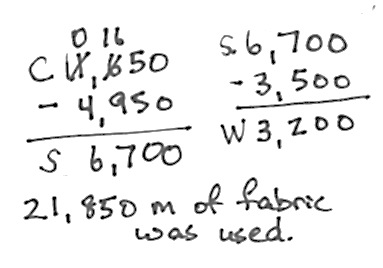 0 16
C 11,650
- 4,950
S 6,700
S. 6,700
- 3,500
W 3,200
21,850 m of fabric
was used.